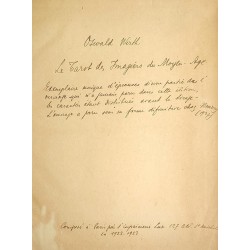 Oswald Wirth
Le Tarot de Imagiers du Moyen-Age
Exemplaire unique d'épreuves d'une partie de l'
ouvrage qui n'a jamais paru dans cette édition,
les caractères étant distribués avant le tirage.
L'ouvrage a paru sous sa forme définitive chez
(1927)
Composé à Paris par l'imprimerie
en 1922, 1923